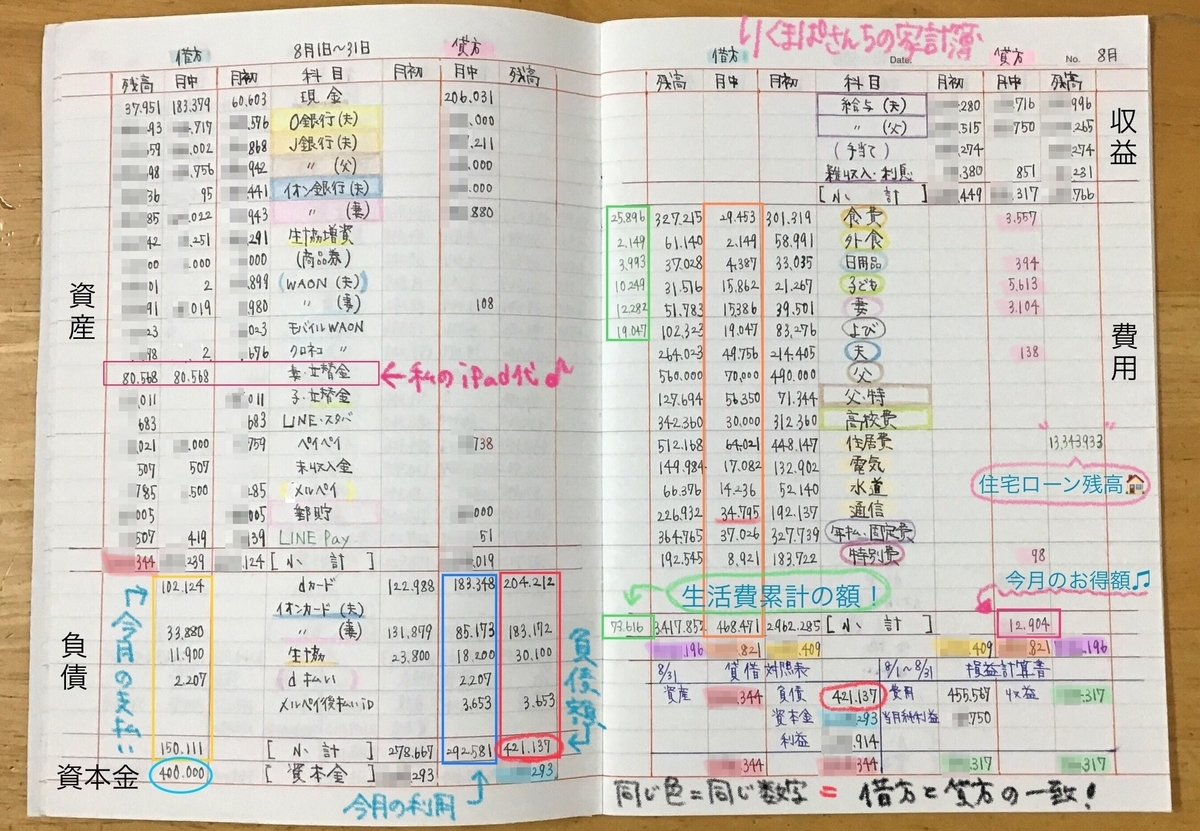 りくまぱさんちの家計簿
借方 8月1日〜31日 貸方
残高 月中 月初 科目 月初 月中 残高
37.951 183.379 60.603 現金 206.031
93 .717 .576 O銀行(夫) .000
59 .002 868 J銀行(夫) .211
98 .756 .942 〃 (父) .000
36 95 .441 イオン銀行(夫) .000
85 .022 943 〃 (妻) 880
42 .251 291 生協増資
00 .000 (商品券)
01 2 .899 WAON (夫)
91 019 .980 〃 (妻) 108
23 023 モバイルWAON
98 2 .676 クロネコ 〃
80.568 80.568 妻・立替金 ←私のiPad代♪
.011 011 子・立替金
683 683 LINE・スタバ
.021 .000 759 ペイペイ 738
507 507 未収入金
785 .500 285 メルペイ
005 005 郵貯 000
.507 419 139 LINE Pay 51
344 239 .124 [小計] .019
資産
102.124 dカード 122.988 183.348 204.212
イオンカード(夫)
33.880 〃 (妻) 131.879 85.173 183.172
11.900 生協 23.800 18.200 30.100
2.207 d払い 2.207
メルペイ後払いiD 3.653 3.653
150.111 [小計] 278.667 292.581 421.137
負債
今月の支払い
負債額
資本金
400.000 [資本金] 293 293
今月の利用
借方 Date. 貸方 No. 8月
残高 月中 月初 科目 月初 月中 残高
給与(夫) .280 .716 996
〃 (父) .515 750 .265
(手当て) .274 .274
雑収入・利息 .380 851 .231
[小計] .449 .317 .766
収益
25.896 327.215 29.453 301.319 食費 3.557
2.149 61.140 2.149 58.991 外食
3.993 37.028 4.387 33.035 日用品 394
10.249 31.516 15.862 21.267 子ども 5.613
12.282 51.783 15.386 39.501 妻 3.104
19.047 102.323 19.047 83.276 よび
264.023 49.756 214.405 夫 138
560.000 70.000 490.000 父
127.694 56.350 71.344 父・特
342.360 30.000 312.360 高校費
512.168 64.021 448.147 住居費 13.343.933
149.984 17.082 132.902 電気
66.376 14.236 52.140 水道
226.932 34.795 192.137 通信
364.765 37.026 327.739 年払・固定費
192.545 8.921 183.722 特別費 98
費用
住宅ローン残高
生活費累計の額!
今月のお得額♫
73.616 3417.852 468.471 2962.285 [小計] 12.904
.196 .821 .409 409 821 .196
8/31 貸借対照表 8/1〜8/31 損益計算書
資産 .344 負債 421.137 費用 455.567 収益 .317
資本金 293 当月純利益 .750
利益 .914
.344 .344 .317 .317
同じ色=同じ数字 = 借方と貸方の一致!